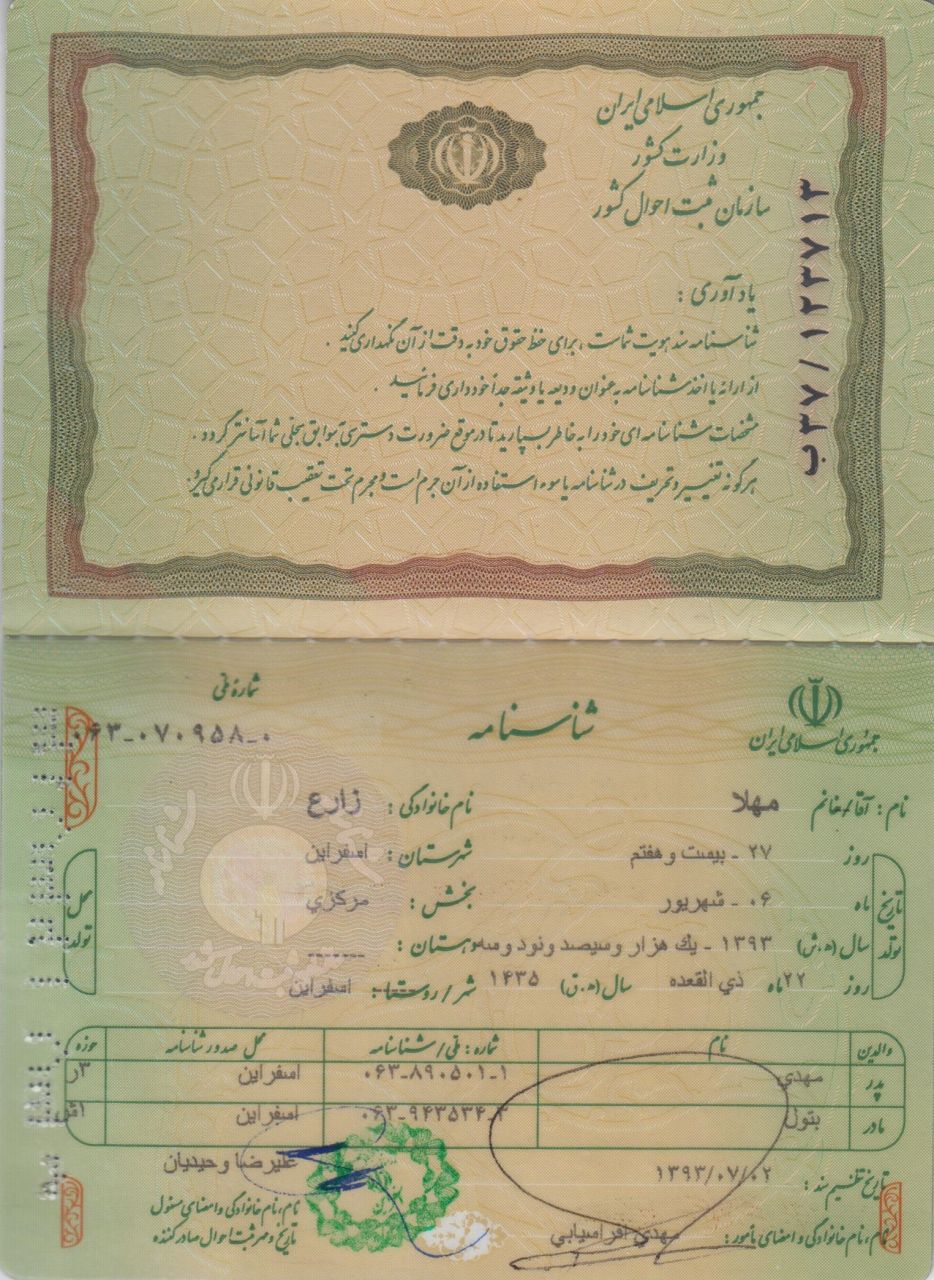 جمهوری اسلامی ایران
وزارت کشور
سازمان ثبت احوال کشور
ب۳۷/۱۲۳۷۱۳
یادآوری :
شناسنامه سند هویت شماست ، برای حفظ حقوق خود به دقت از آن نگهداری کنید .
از ارائه یا اخذ شناسنامه به عنوان ودیعه یا وثیقه جداً خودداری فرمائید .
مشخصات شناسنامه ای خود را به خاطر بسپارید تا در موقع ضرورت دسترسی به سوابق سجلی شما آسانتر گردد .
هرگونه تغییر و تحریف در شناسنامه یا سوء استفاده از آن جرم است و مجرم تحت تعقیب قانونی قرار می گیرد.
جمهوری اسلامی ایران
شناسنامه
شمارۀ ملی
۰۶۳-۰۷۰۹۵۸-۰
نام : آقا/خانم مهلا نام خانوادگی : زارع
تاریخ تولد
محل تولد
روز ۲۷ - بیست و هفتم شهرستان : اسفراین
ماه ۰۶ - شهریور بخش : مرکزی
سال (ه.ش) ۱۳۹۳ - یك هزار وسیصد ونود وسه دهستان : -------
روز ۲۲ ماه ذي القعده سال (ه.ق) ۱۴۳۵ شهر/روستا : اسفراین
والدین نام شماره : ملی/شناسنامه محل صدور شناسنامه حوزه
پدر مهدي ۰۶۳-۸۹۰۵۰۱-۱ اسفراین ۳ر
مادر بتول ۰۶۳-۹۴۳۵۳۴-۳ اسفراین ۱ش
تاریخ تنظیم سند : ۱۳۹۳/۰۷/۰۲ علیرضا وحیدیان
نام، نام خانوادگی و امضای مأمور : مهدي افراسیابي
نام، نام خانوادگی و امضای مسئول
تاریخ و مهر ثبت احوال صادر کننده